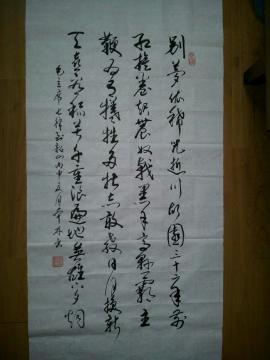 别梦依稀咒逝川故园三十二年前
红旗卷起农奴戟黑手高悬霸主
鞭为有牺牲多壮志敢教日月换新
天喜看稻菽千重浪遍地英雄下夕烟
毛主席七律韶山丙申